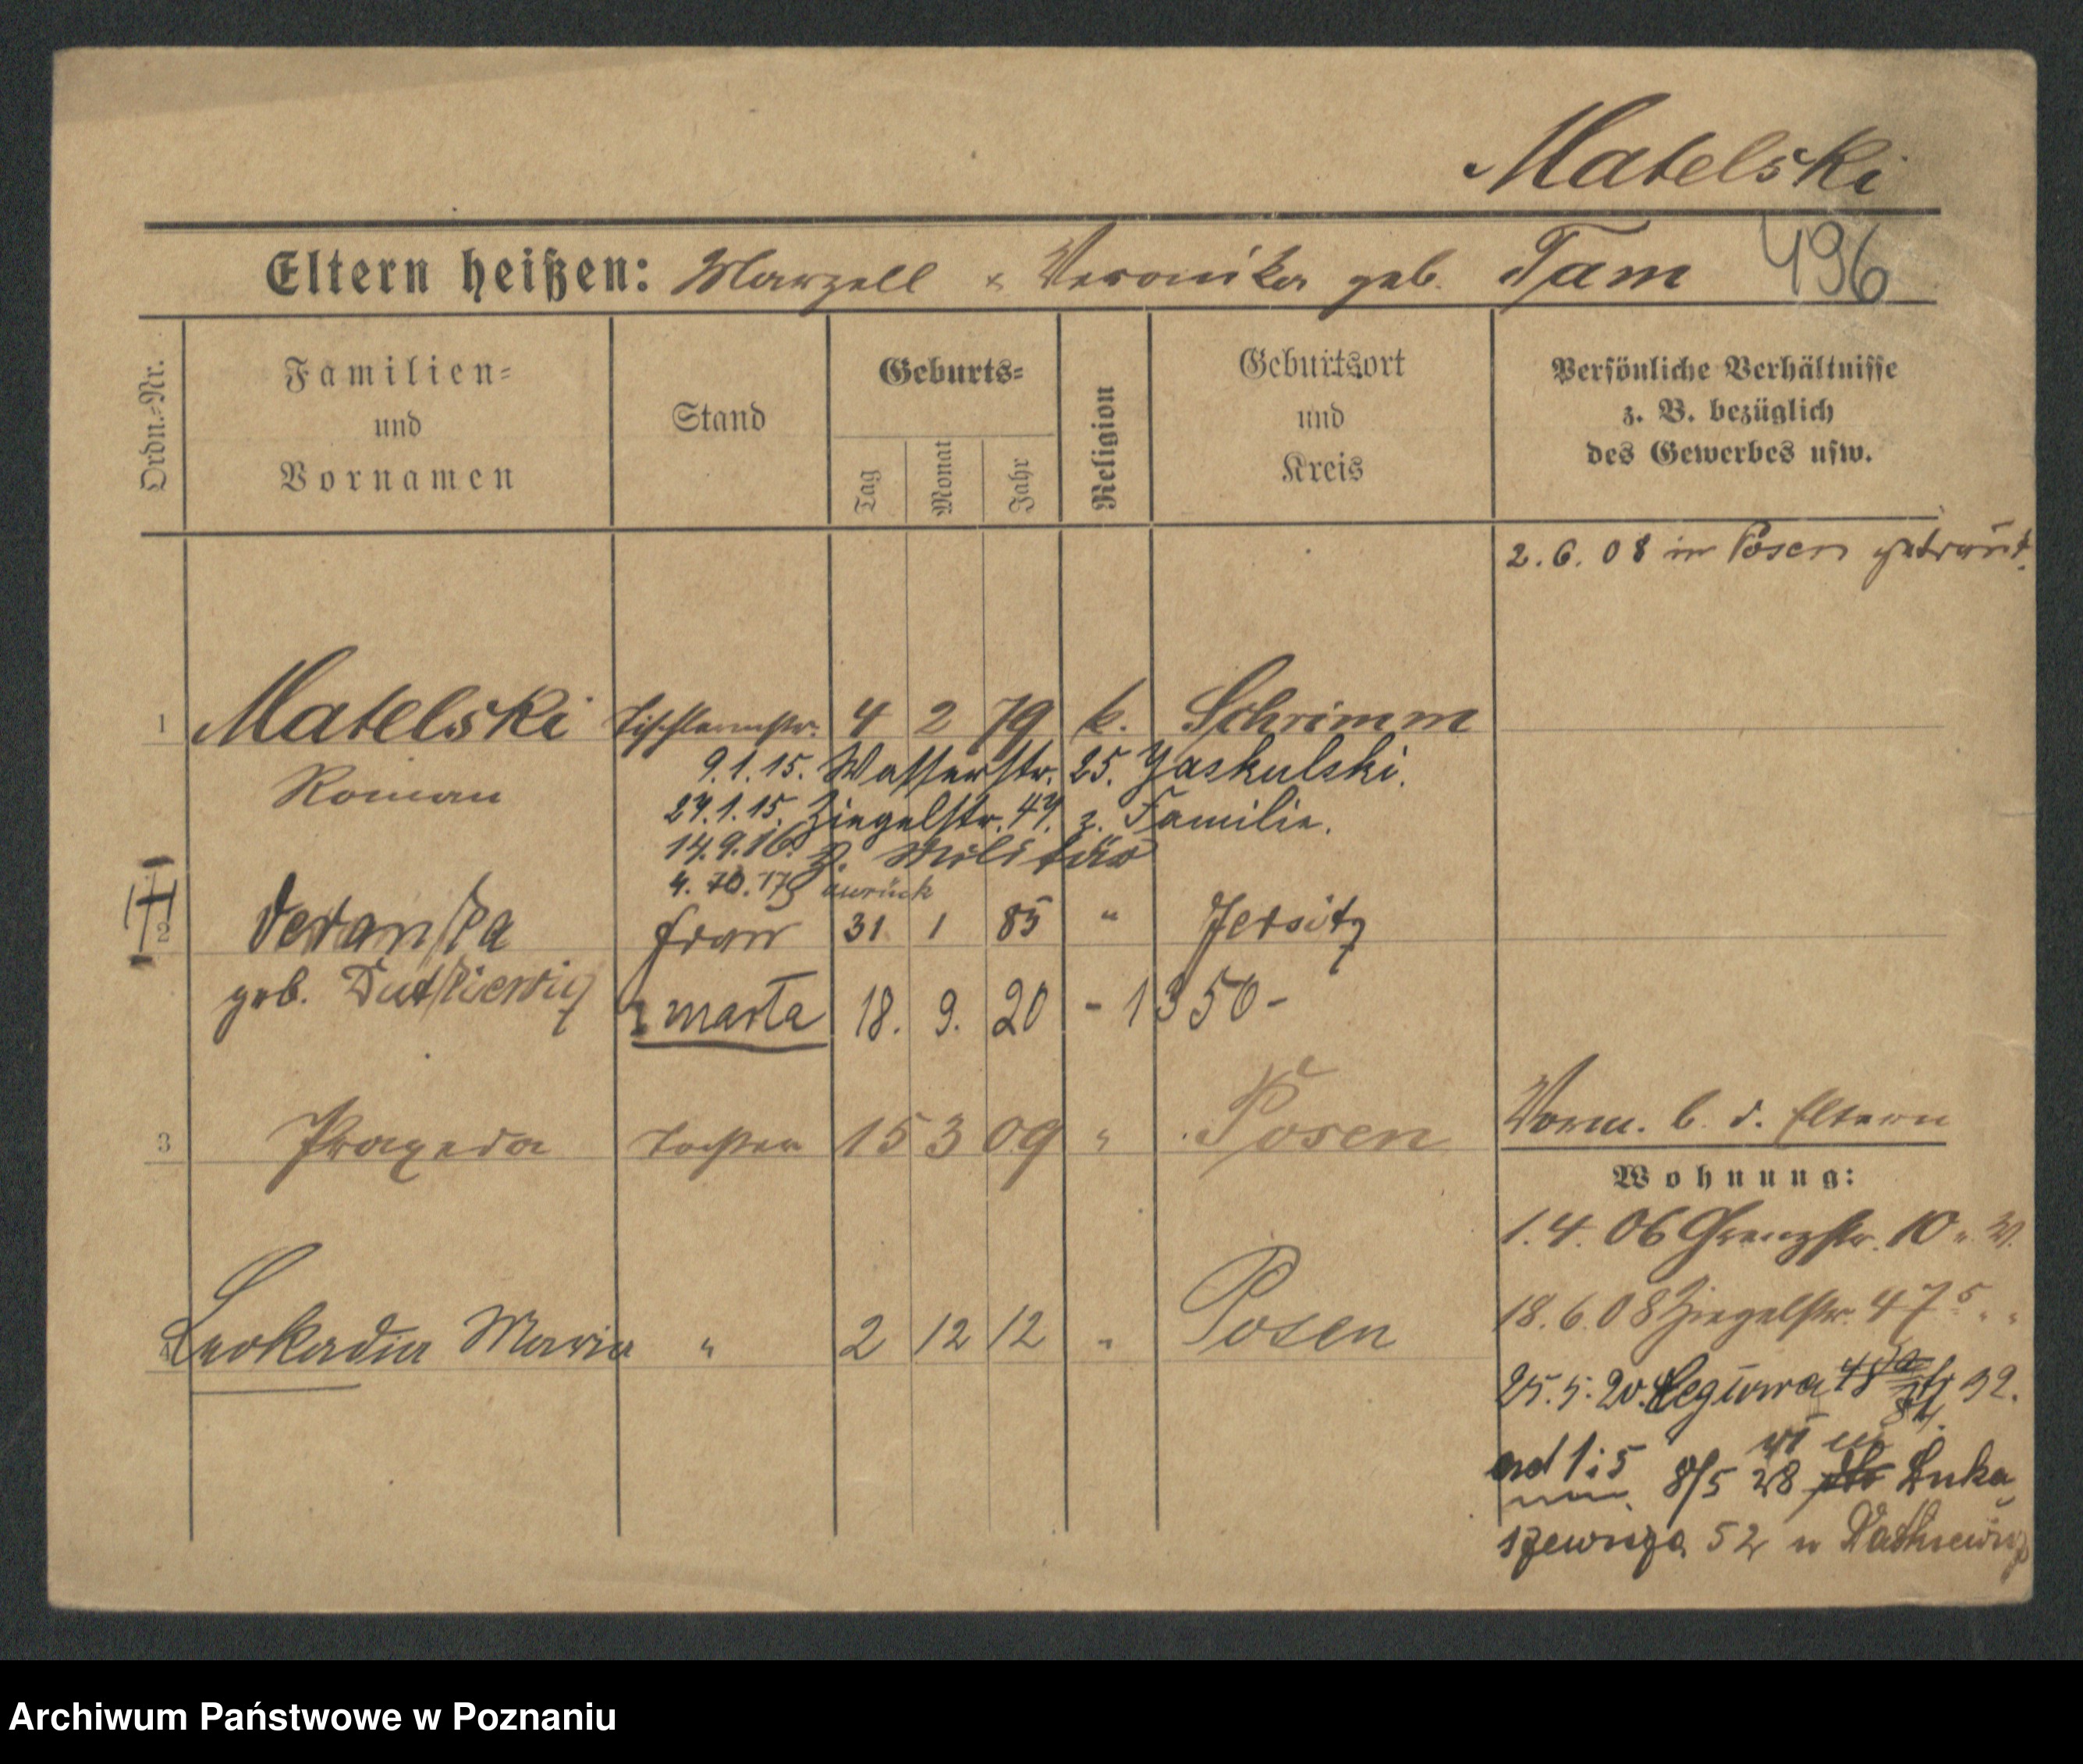 Matelski
Eltern heißen: Marzell & Veronika geb. Tam 496
Ordn.-Nr.
Familien-
und
Vornamen
Stand
Geburts-
Tag
Monat
Jahr
Religion
Geburtsort
und
Kreis
Persönliche Verhältnisse
z. B. bezüglich
des Gewerbes usw.
2. 6. 08 in Posen getraut.
1 Matelski Tischlermstr. 4 2 79 k. Schrimm
Roman
9.1.15. Wasserstr. 25. Jaskulski.
27.1.15. Ziegelstr. 47. z. Familie.
14.9.16. z. Militär
4. 10. 17 zurück
2 Frau 31 1 85 " Jersitz
geb. Dutkiewicz
Marta 18. 9. 20 - 1350 -
3 Praxeda Tochter 15 3 09 " Posen
Vorm. b. d. Eltern
Wohnung:
1. 4. 06 Grenzstr. 10 b. W.
18. 6. 08 Ziegelstr. 47 " "
4 Leokadia Maria " 2 12 12 " Posen
25. 5. 20. 32.
od 1 i 5 8/5 28 Łuka
szewicza 52
Archiwum Państwowe w Poznaniu